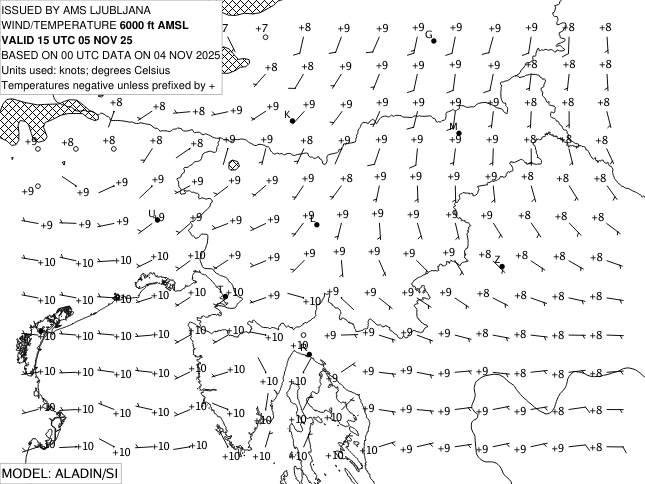 ISSUED BY AMS LJUBLJANA
WIND/TEMPERATURE 6000 ft AMSL
VALID 15 UTC 05 NOV 25
BASED ON 00 UTC DATA ON 04 NOV 2025
Units used: knots; degrees Celsius
Temperatures negative unless prefixed by +
+7 +8 +9 +9 +9 +9 +9 +8 +8
G
+8 +8 +9 +9 +9 +9 +8 +8 +8
+8 +8 +8 +8 +9 +9 +9 +9 +9 +8 +8 +8
K
M
+9 +8 +8 +8 +9 +9 +9 +9 +9 +9 +9 +8 +8 +8
+9 +9 +9 +9 +9 +9 +9 +9 +9 +9 +9 +8 +8 +8
U
L
+9 +9 +9 +9 +9 +9 +9 +9 +9 +9 +9 +8 +8 +8
+10 +10 +10 +10 +9 +9 +9 +9 +9 +9 +8 +8 +8
Z
+10 +10 +10 +10 +10 +9 +10 +9 +9 +9 +9 +9 +8 +8
T
+10 +10 +10 +10 +10 +10 +10 +10 +9 +9 +9 +9 +9 +8 +8
R
+10 +10 +10 +10 +10 +10 +10 +9 +9 +9 +9 +9 +8 +8
+10 +10 +10 +10 +10 +10 +10 +10 +9 +9 +9 +9 +8 +8
+10 +10 +10 +10 +10 +10 +10 +10 +10 +9 +9 +9 +9 +8
MODEL: ALADIN/SI